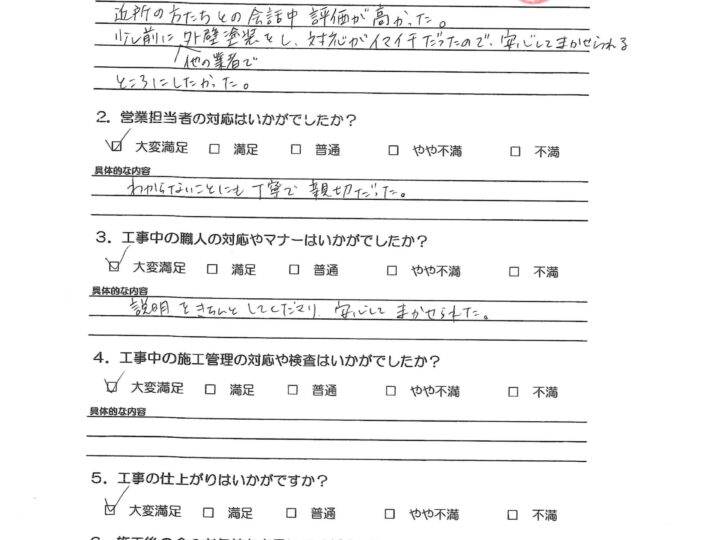 近所の方たちとの会話中 評価が高かった。
少し前に外壁塗装をし、対応がイマイチだったので、安心してまかせられる
他の業者で
ところにしたかった。
2. 営業担当者の対応はいかがでしたか？
☑ 大変満足 □ 満足 □ 普通 □ やや不満 □ 不満
具体的な内容
わからないことにも丁寧で親切だった。
3. 工事中の職人の対応やマナーはいかがでしたか？
☑ 大変満足 □ 満足 □ 普通 □ やや不満 □ 不満
具体的な内容
説明をきちんとしてくださり、安心してまかせられた。
4. 工事中の施工管理の対応や検査はいかがでしたか？
☑ 大変満足 □ 満足 □ 普通 □ やや不満 □ 不満
具体的な内容
5. 工事の仕上がりはいかがですか？
☑ 大変満足 □ 満足 □ 普通 □ やや不満 □ 不満